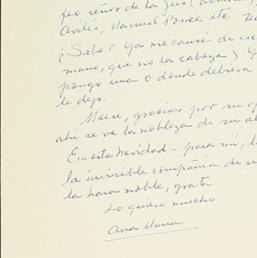 peo señor de la Jus
Avilés, Manuel Ponce etc
¡Sabe! Ya me cansé de esc
mano, que no la cabeza) y
pongo una o donde debiera
le dejo.
Maese, gracias por su
ahí se ve la nobleza de su al
En esta Navidad - para mí, l
la invisible compañía de u
la hora noble, grata.
Lo quiero mucho
Ana María